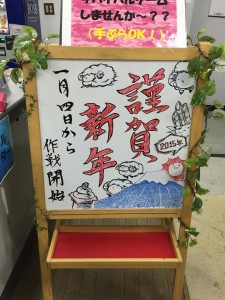 しませんか~??
(手ぶらOK!)
謹賀
新年
2015年
一月四日から
作戦開始